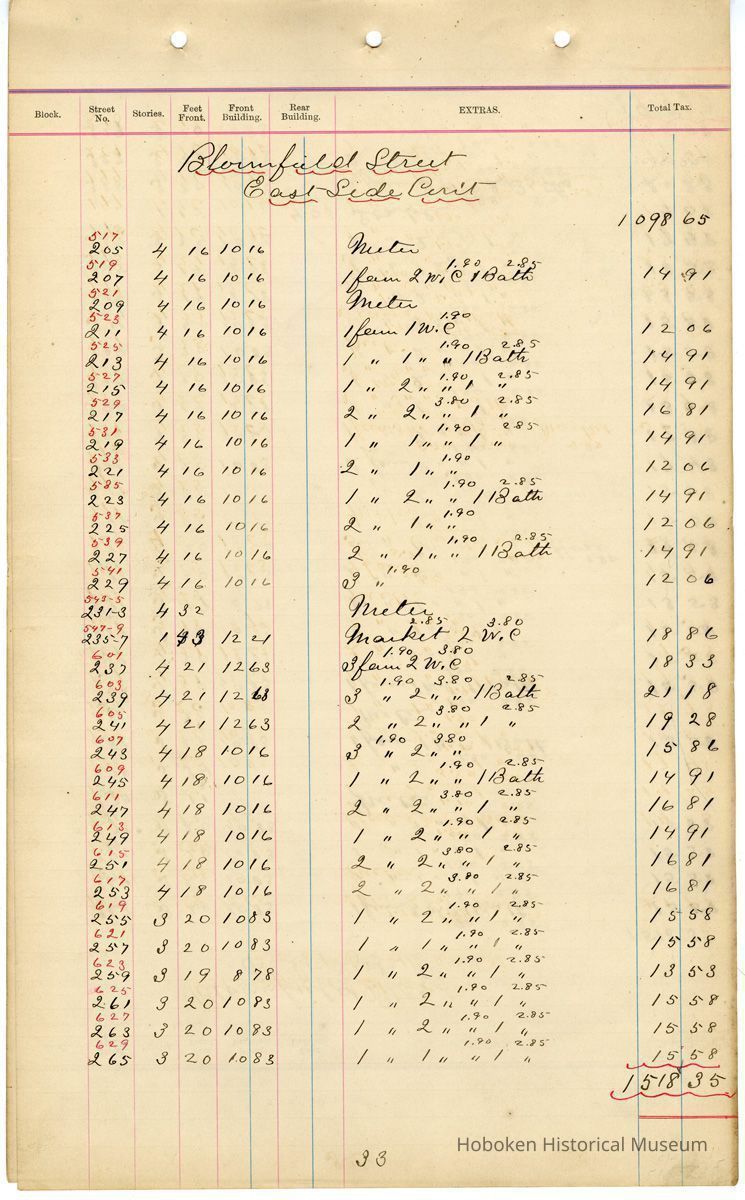 Block. Street No. Stories. Feet Front. Front Building. Rear Building. EXTRAS. Total Tax.
Bloomfield Street
East Side Con't
1098 65
517
205 4 16 10 16 Meter
519 1.90 2.85
207 4 16 10 16 1 fam 2 W.C 1 Bath 14 91
521
209 4 16 10 16 Meter
523 1.90
211 4 16 10 16 1 fam 1 W.C 12 06
525 1.90 2.85
213 4 16 10 16 1 " 1 " " 1 Bath 14 91
527 1.90 2.85
215 4 16 10 16 1 " 2 " " 1 " 14 91
529 3.80 2.85
217 4 16 10 16 2 " 2 " " 1 " 16 81
531 1.90 2.85
219 4 16 10 16 1 " 1 " " 1 " 14 91
533 1.90
221 4 16 10 16 2 " 1 " " 12 06
535 1.90 2.85
223 4 16 10 16 1 " 2 " " 1 Bath 14 91
537 1.90
225 4 16 10 16 2 " 1 " " 12 06
539 1.90 2.85
227 4 16 10 16 2 " 1 " " 1 Bath 14 91
541 1.90
229 4 16 10 16 3 " 12 06
543-5
231-3 4 32 Meter
547-9 2.85 3.80
235-7 1 43 12 21 Market 2 W.C 18 86
601 1.90 3.80
237 4 21 12 63 3 fam 2 W.C 18 33
603 1.90 3.80 2.85
239 4 21 12 63 3 " 2 " " 1 Bath 21 18
605 3.80 2.85
241 4 21 12 63 2 " 2 " " 1 " 19 28
607 1.90 3.80
243 4 18 10 16 3 " 2 " " 15 86
609 1.90 2.85
245 4 18 10 16 1 " 2 " " 1 Bath 14 91
611 3.80 2.85
247 4 18 10 16 2 " 2 " " 1 " 16 81
613 1.90 2.85
249 4 18 10 16 1 " 2 " " 1 " 14 91
615 3.80 2.85
251 4 18 10 16 2 " 2 " " 1 " 16 81
617 3.80 2.85
253 4 18 10 16 2 " 2 " " 1 " 16 81
619 1.90 2.85
255 3 20 10 83 1 " 2 " " 1 " 15 58
621 1.90 2.85
257 3 20 10 83 1 " 1 " " 1 " 15 58
623 1.90 2.85
259 3 19 8 78 1 " 2 " " 1 " 13 53
625 1.90 2.85
261 3 20 10 83 1 " 2 " " 1 " 15 58
627 1.90 2.85
263 3 20 10 83 1 " 2 " " 1 " 15 58
629 1.90 2.85
265 3 20 10 83 1 " 1 " " 1 " 15 58
1518 35
33
Hoboken Historical Museum